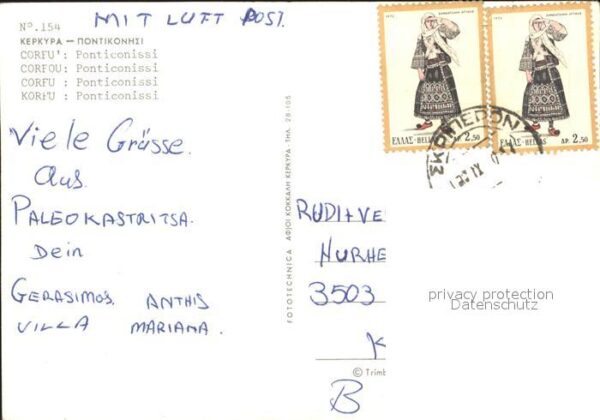 MIT LUFT POST.
Nº. 154
ΚΕΡΚΥΡΑ — ΠΟΝΤΙΚΟΝΗΣΙ
CORFU' : Ponticonissi
CORFOU: Ponticonissi
CORFU : Ponticonissi
KORFU : Ponticonissi
Viele Grüsse.
aus
PALEOKASTRITSA.
Dein
GERASIMOS. ANTHIS
VILLA MARIANA.
FOTOTECHNICA ΑΦΙΟΙ ΚΟΚΚΑΛΗ ΚΕΡΚΥΡΑ ΤΗΛ. 28-105
ΕΛΛΑΣ-HELLAS ΔΡ. 2.50
ΕΛΛΑΣ-HELLAS ΔΡ. 2.50
ΣΚΡΙΠΕΡΟΝ
RUDI+VE
NURHE
3503
K
B
© Trimb
privacy protection
Datenschutz